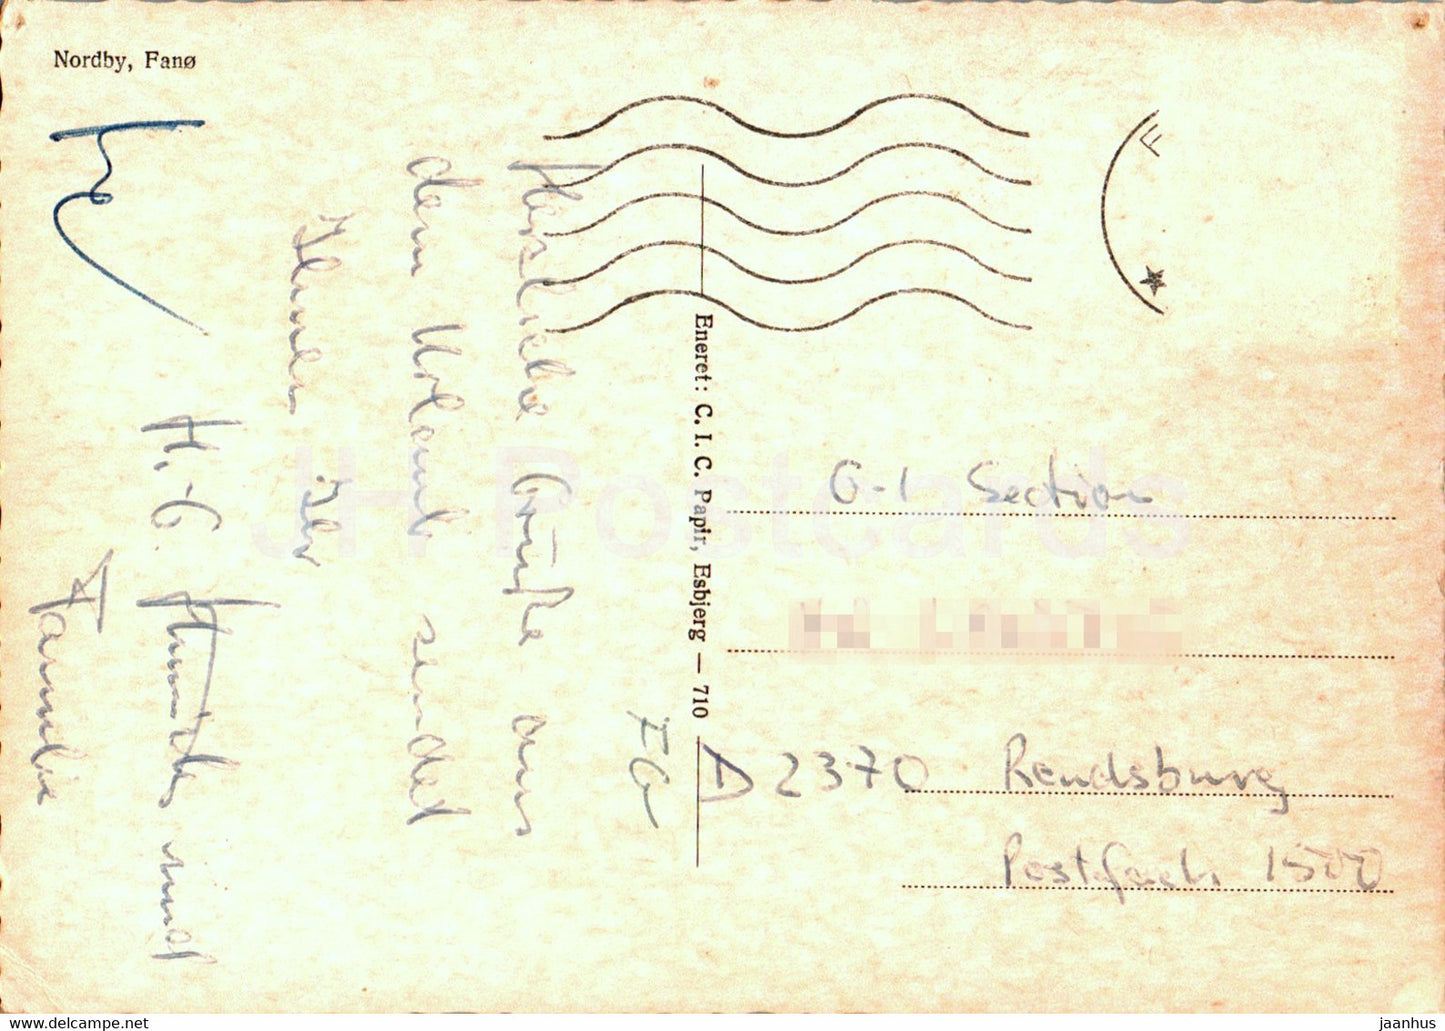 Nordby, Fanø
Herzliche Grüße aus
dem Urlaub sendet
Ihnen Ihr
H.-G. und
Familie
Eneret: C. I. C. Papir, Esbjerg — 710
F
G-1 Section
D 2370 Rendsburg
Postfach 1500
JH Postcards
delcampe.net
jaanhus